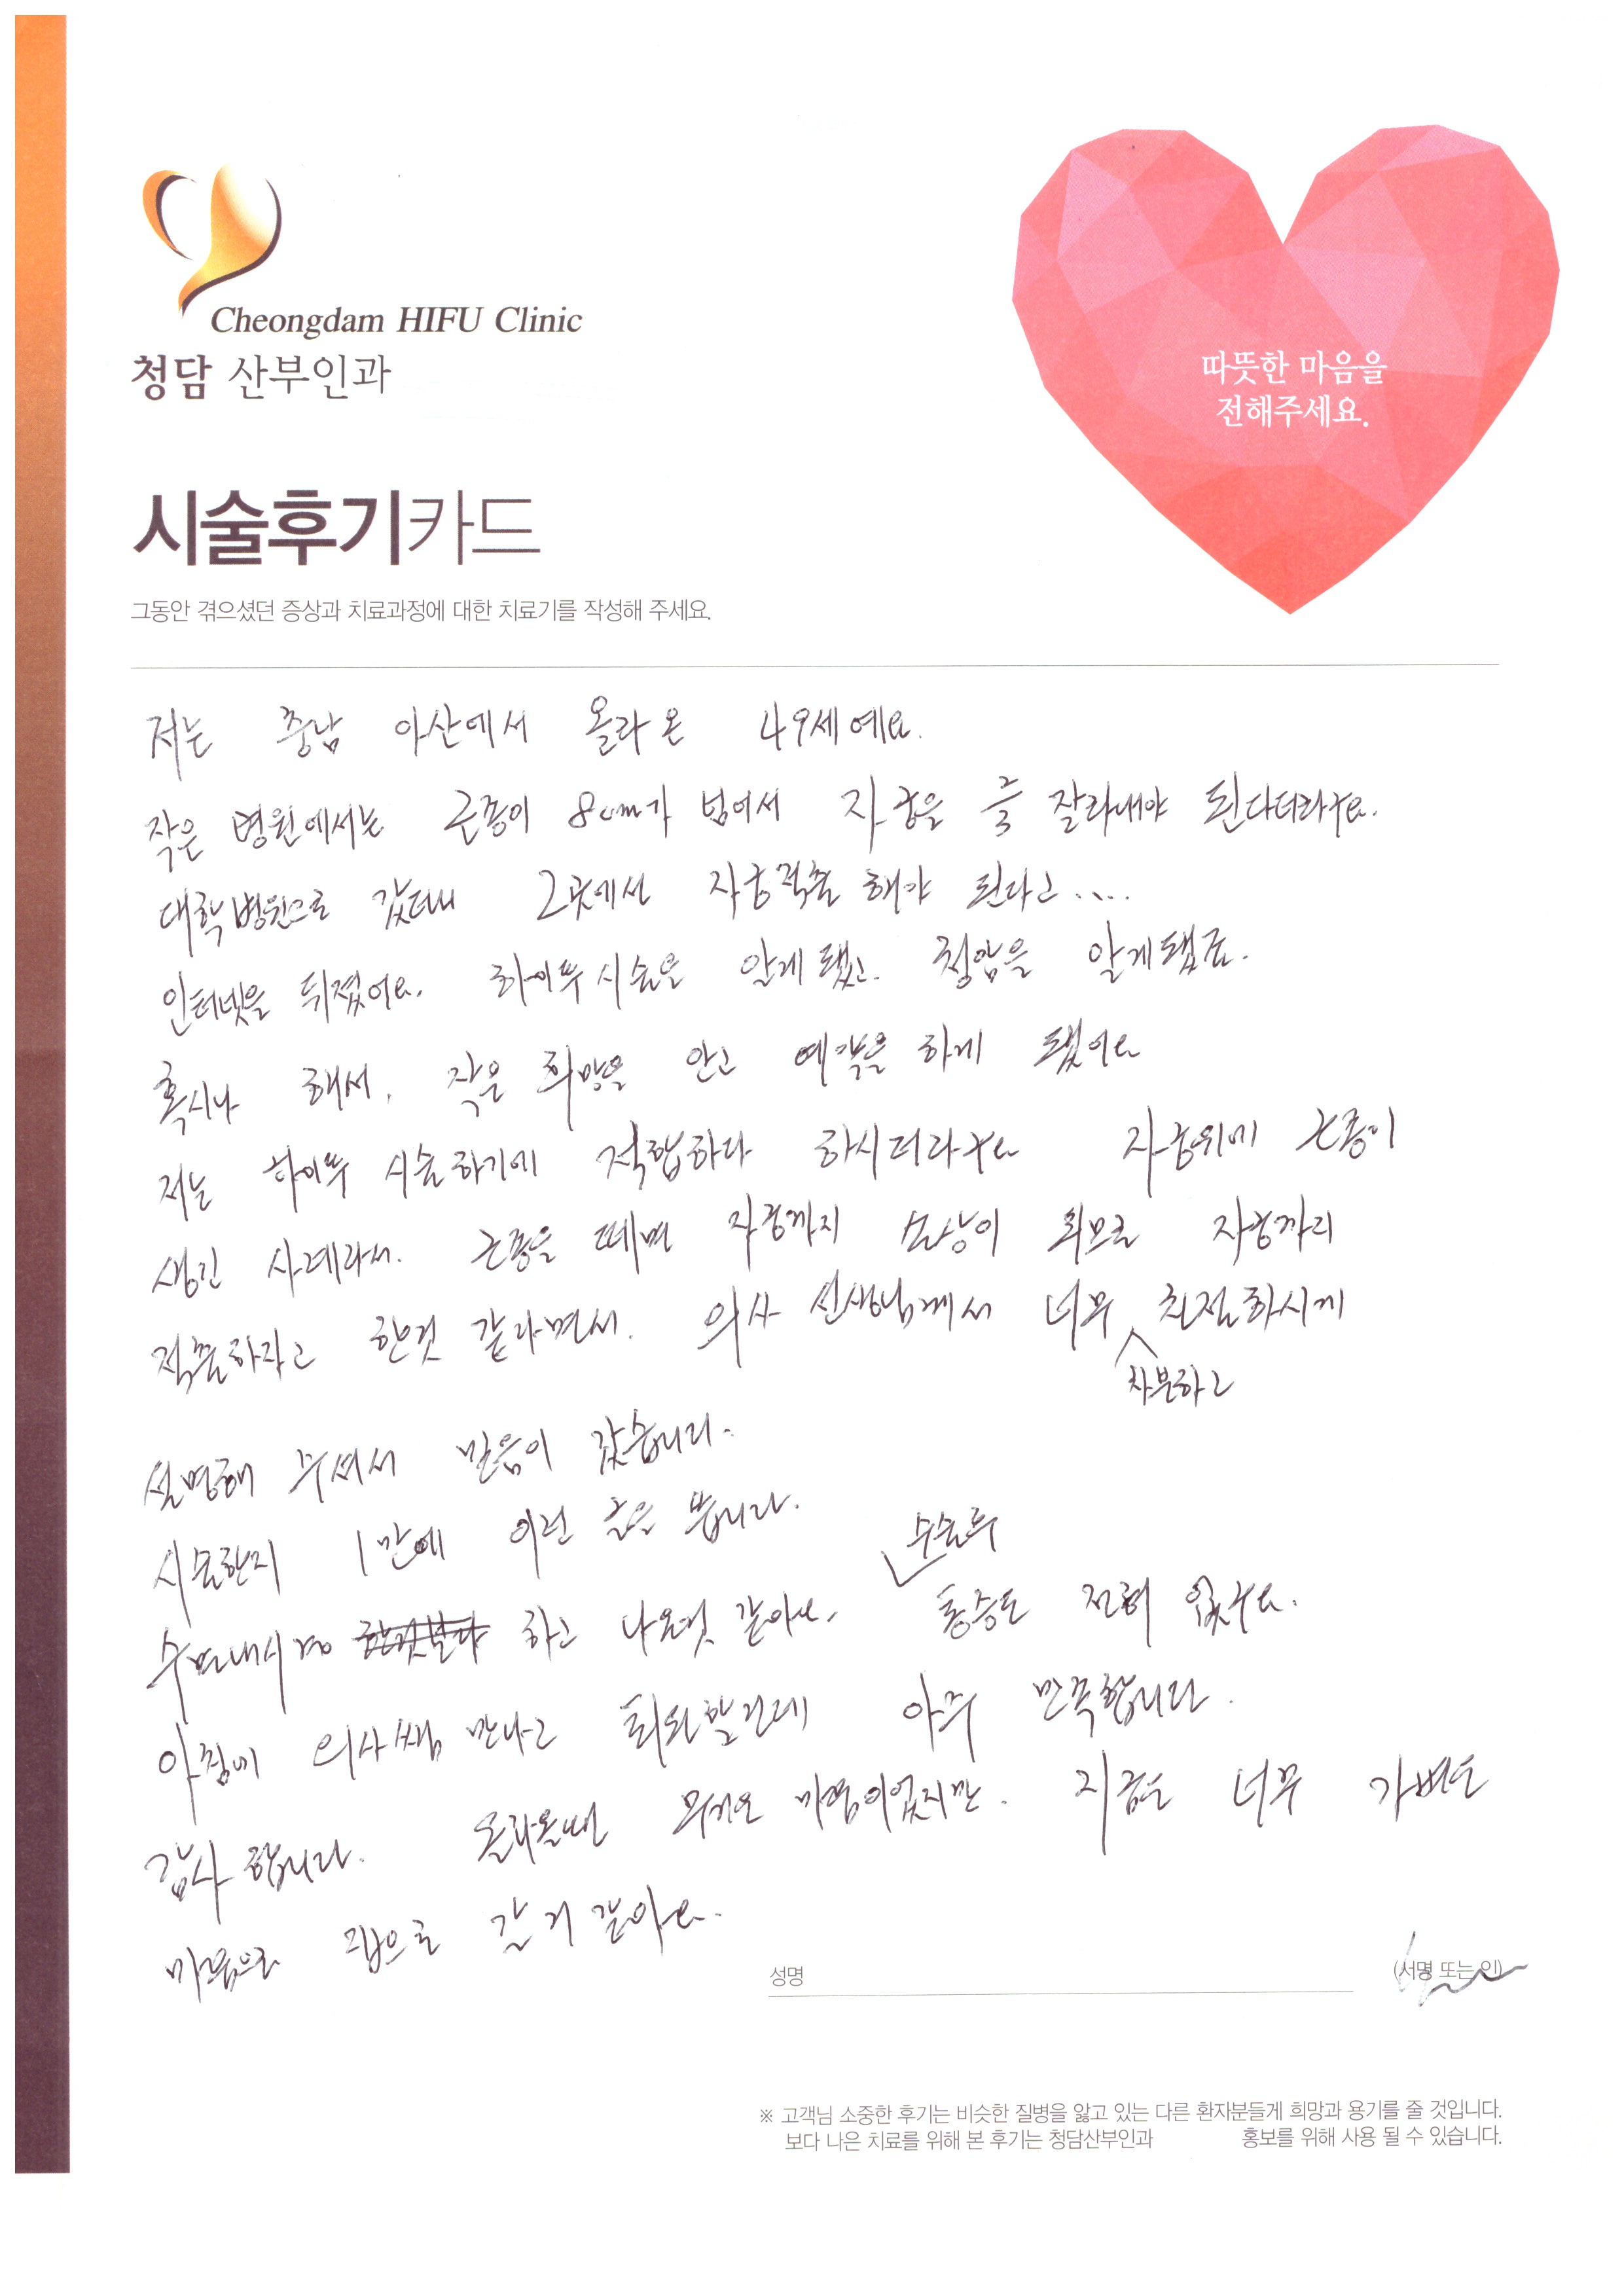 Cheongdam HIFU Clinic
청담 산부인과
따뜻한 마음을
전해주세요.
시술후기카드
그동안 겪으셨던 증상과 치료과정에 대한 치료기를 작성해 주세요.
저는 충남 아산에서 올라온 49세예요.
작은 병원에서는 근종이 8cm가 넘어서 자궁을 잘라내야 된다더라구요.
대학병원으로 갔더니 그곳에서 자궁적출 해야 된다고....
인터넷을 뒤졌어요. 하이푸시술을 알게됐고. 청담을 알게됐죠.
혹시나 해서, 작은 희망을 안고 예약을 하게 됐어요
저는 하이푸 시술하기에 적합하다 하시더라구요 자궁위에 근종이
생긴 사례라서. 근종을 떼면 자궁까지 손상이 되므로 자궁까지
적출하라고 한것 같다면서. 의사 선생님께서 너무 차분하고 친절하시게
설명해 주셔서 믿음이 갔습니다.
시술한지 1만에 이런 글을 씁니다.
수면내시경 하고 나온것 같아요. 수술후 통증도 전혀 없구요.
아침에 의사쌤 만나고 퇴원할건데 아주 만족합니다.
감사합니다. 올라올땐 무거운 마음이었지만. 지금은 너무 가벼운
마음으로 집으로 갈거 같아요.
성명 (서명 또는 인)
※ 고객님 소중한 후기는 비슷한 질병을 앓고 있는 다른 환자분들게 희망과 용기를 줄 것입니다.
보다 나은 치료를 위해 본 후기는 청담산부인과 홍보를 위해 사용 될 수 있습니다.